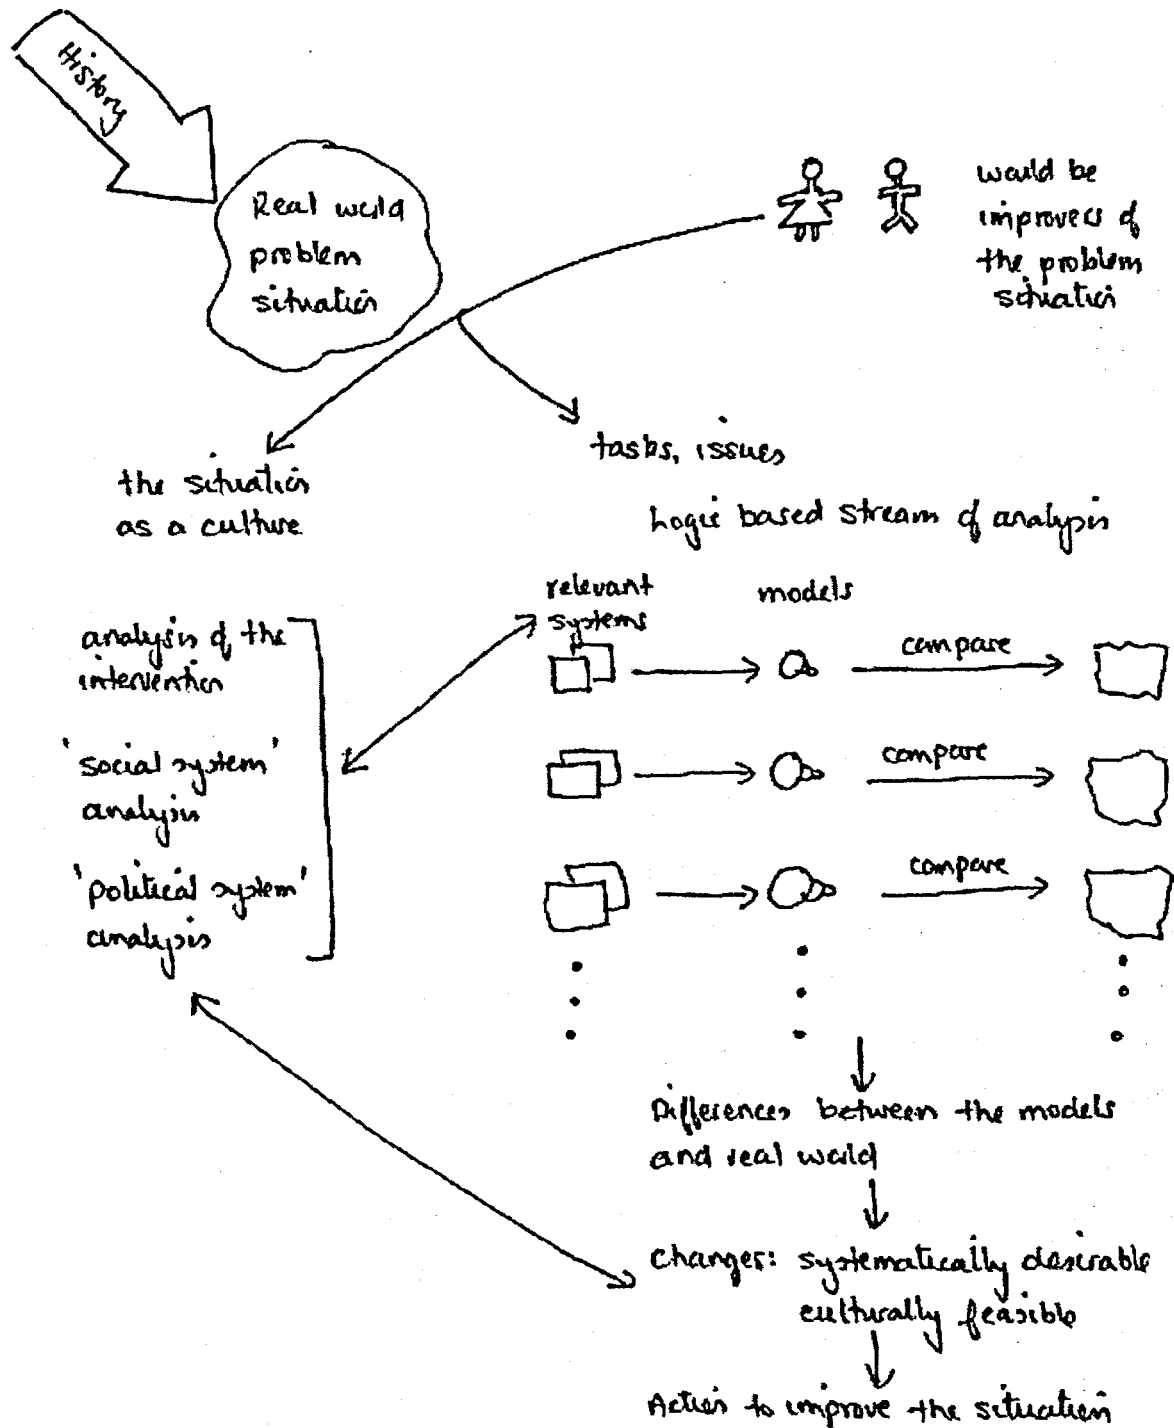 History
Real world
problem
situation
would be
improvers of
the problem
situation
the situation
as a culture
tasks, issues
Logic based stream of analysis
analysis of the
intervention
'social system'
analysis
'political system'
analysis
relevant
systems
models
compare
compare
compare
Differences between the models
and real world
Changes: systematically desirable
culturally feasible
Action to improve the situation